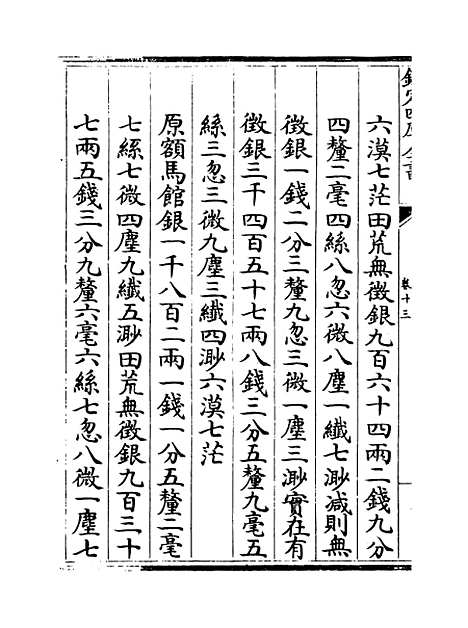 欽定四庫全書
卷十三
六漠七茫田荒無徵銀九百六十四兩二錢九分
四釐二毫四絲八忽六微八塵一纖七渺減則無
徵銀一錢二分三釐九忽三微一塵三渺實在有
徵銀三千四百五十七兩八錢三分五釐九毫五
絲三忽三微九塵三纖四渺六漠七茫
原額馬館銀一千八百二兩一錢一分五釐二毫
七絲七微四塵九纖五渺田荒無徵銀九百三十
七兩五錢三分九釐六毫六絲七忽八微一塵七